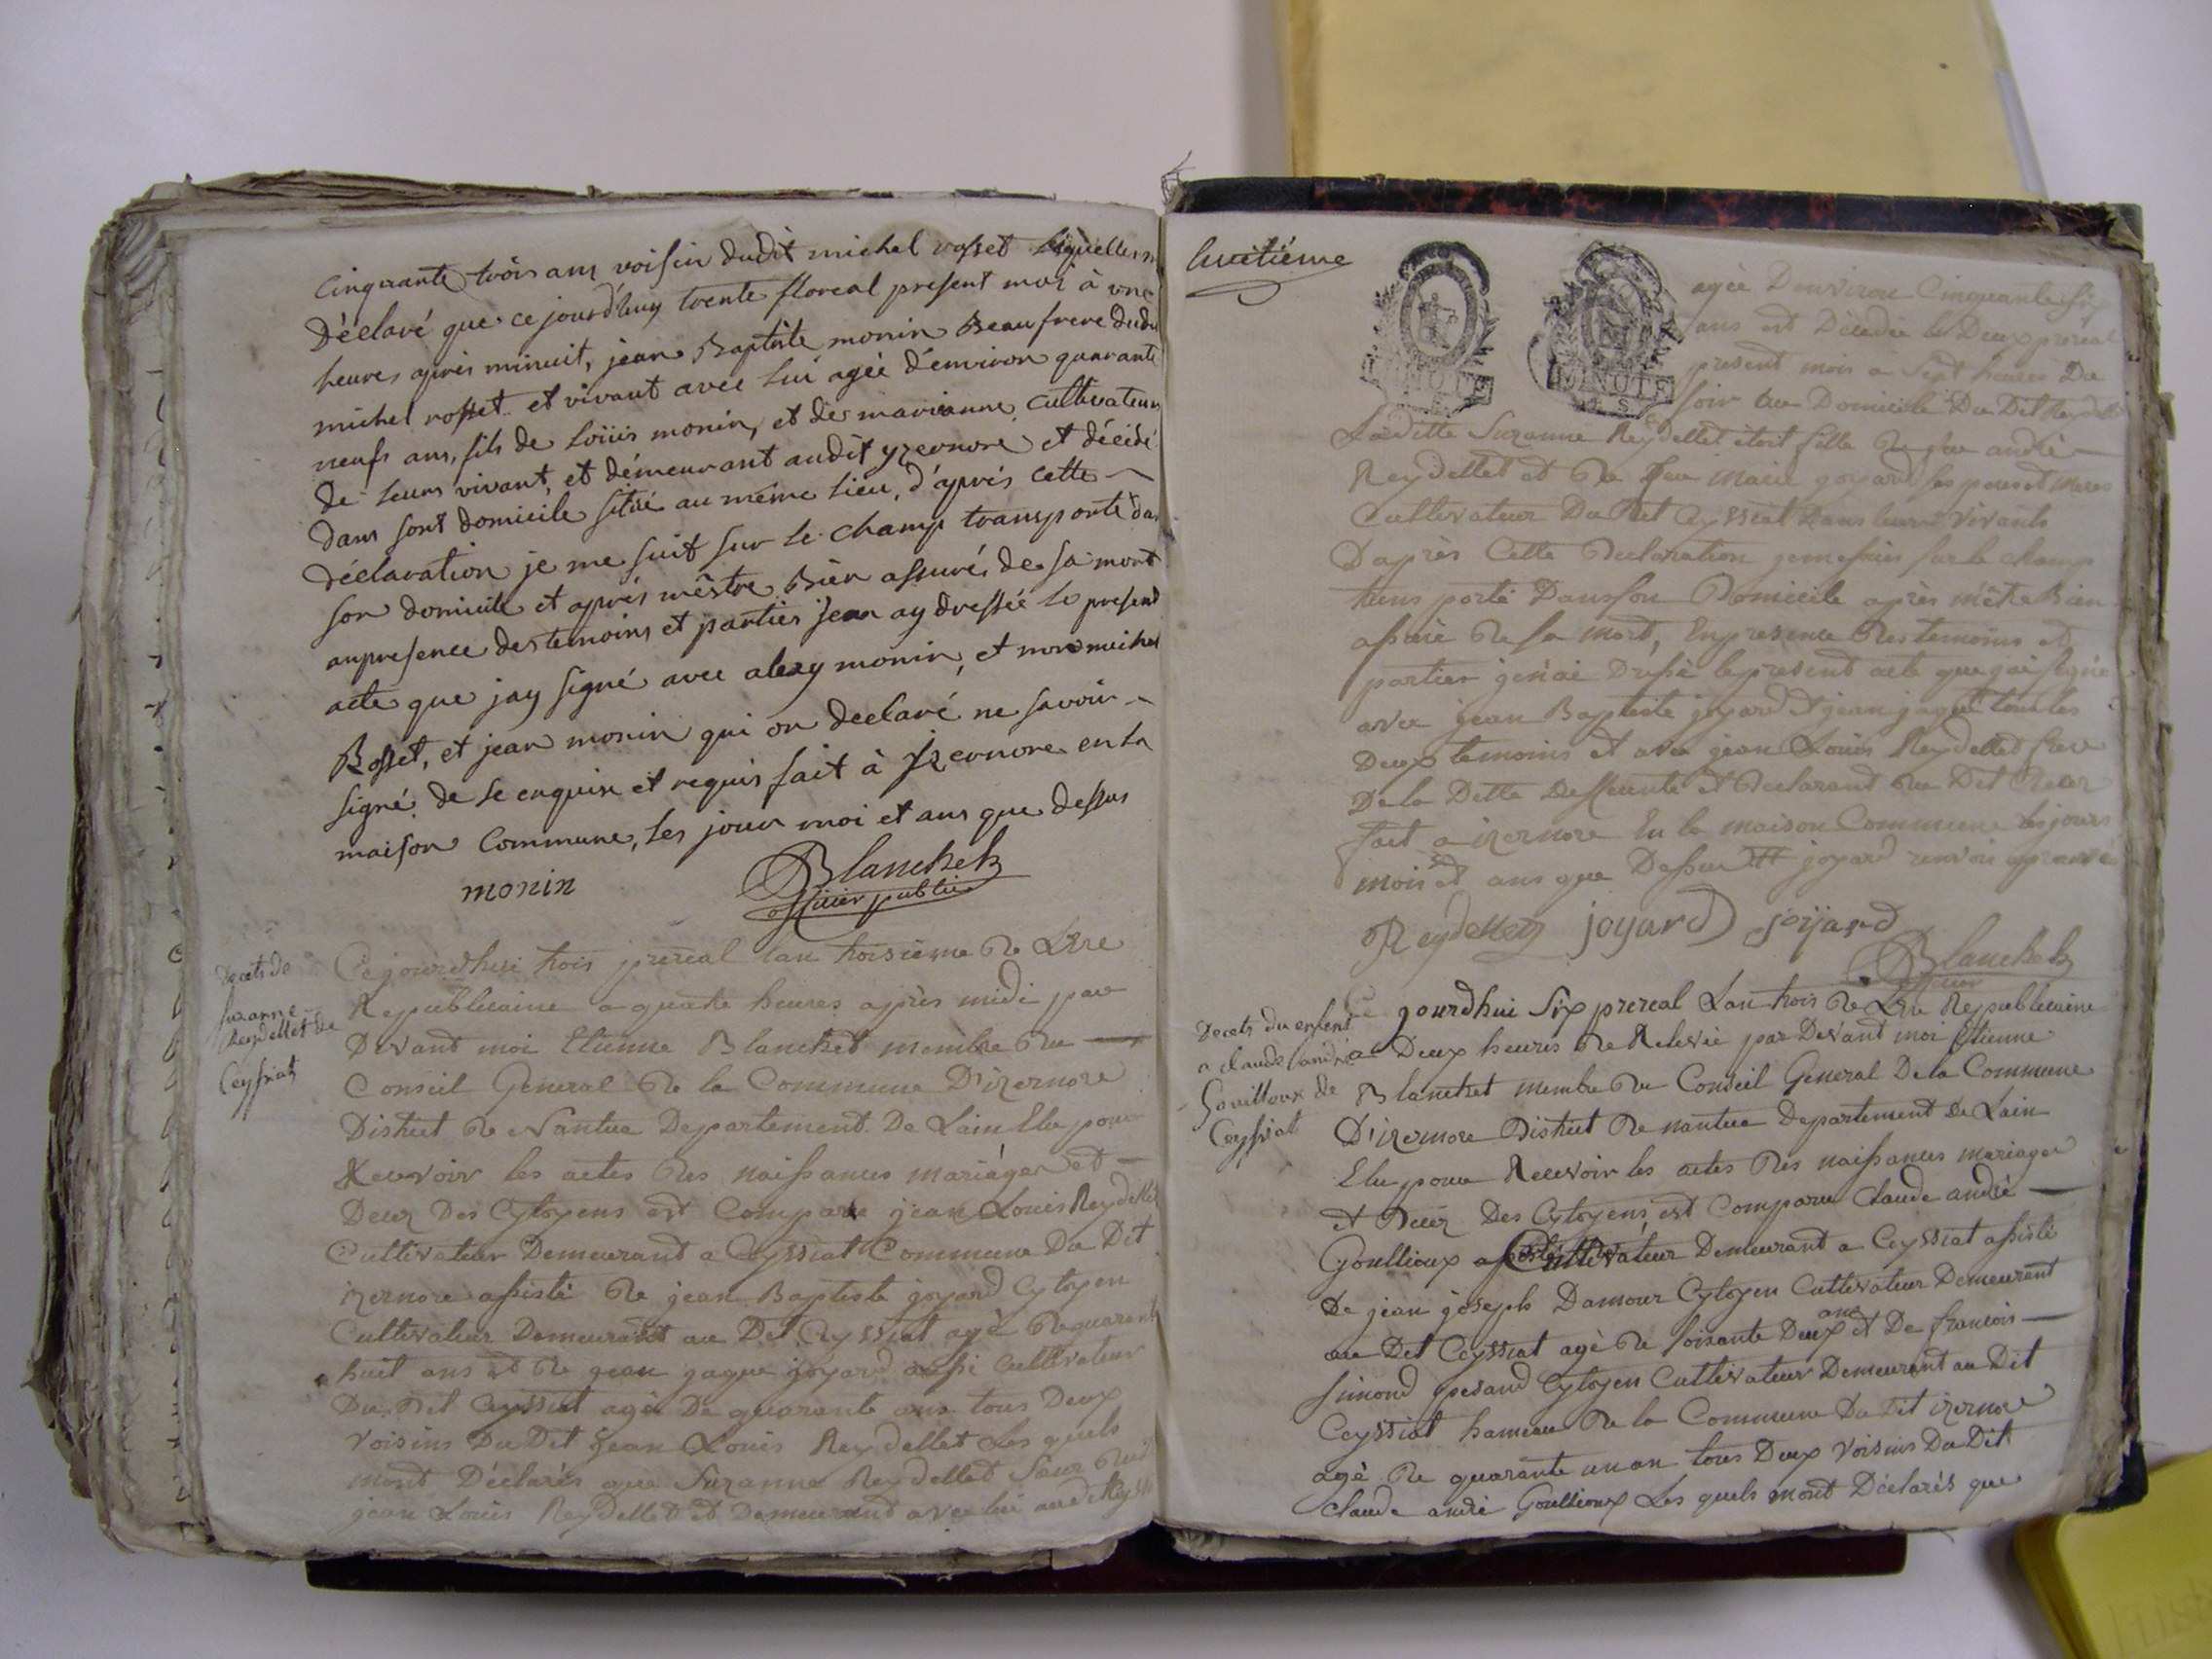 Cinquante trois ans voisin dudit michel rosset lesquelles m
déclaré que ce jourdhuy trente floreal present moi à une
heures après minuit, jean Baptiste monin Beaufrere dudit
michel rosset et vivant avec lui agée d'environ quarante
neufs ans, fils de loüis monin, et de marianne cultivateurs
de leurs vivant, et démeurant audit yzernore et décédé
dans sont domicile sitüé au même lieu, d'après cette
déclaration je me suit sur le champ transporté dan
son domicile et après mêstre Bien assuré, de sa mort
anpresence des temoins et parties jean ay dressée le present
acte que jay signé avec alexy monin, et non michel
Rosset, et jean monin qui on declaré ne savoir
signé de ce enquis et requis fait à Izernore en la
maison Commune, les jour moi et ans que dessus
monin
Blanchet
officier public
Decets de
suzanne
Reydellet de
Ceyssiat
Ce jourdhui trois prereal lan troisième de Lere
Republicaine a quatre heures après midi par
Devant moi Etienne Blanchet membre du
Conseil General de la Commune D'izernore
District de Nantua Departement De Lain Elu pour
Recevoir les actes des naissances mariages et
Deez Des Cytoyens est Comparu jean Louis Reydellet
Cultivateur Demeurant a Ceyssiat Commune Du Dit
izernore assisté de jean Baptiste joyard Cytoyen
Cultivateur Demeurant au Dit Ceyssiat agè de quarante
huit ans et de jean jaque joyard aussi Cultivateur
Du Dit Ceyssiat agè De quarante ans tous Deux
Voisins Du Dit jean Louis Reydellet Les quels
mont Déclarés que Suzanne Reydellet Sœur dud
jean Louis Reydellet et Demeurant avec lui aud Ceyssi
huitiéme
agèe Denviron Cinquante six
ans est Décédée le Deux prereal
present mois a Sept heures Du
soir au Domicile Du Dit Reydellet
Ladite Suzanne Reydellet étoit fille de feu andré
Reydellet et de feu marie joyard ses peres et meres
Cultivateur Du Dit Ceyssiat Dans leurs Vivants
Daprès Cette Declaration jemesuis sur le champ
trens porté Dans son Domicile après mêtre Bien
assuré de sa mort, En presence des temoins et
parties jen ai Dressé le present acte que jai signé
avec jean Baptiste joyard et jean jaque tous les
Deux temoins et avec jean Louis Reydellet frere
De la Ditte Deffunte et Declarant du Dit Deez
fait a izernore En la maison Commune les jours
mois et ans que Dessus joyard renvoi aprouvé
Reydellet joyard joyard
Blanchet
officier
Decets du enfent
a claude andré
Gouilloux de
Ceyssiat
Ce jourdhui Six prereal Lan trois de Lere Republicaine
a Deux heures de Relevée par Devant moi Etienne
Blanchet membre du Conseil General De la Commune
D'izernore District de nantua Departement De Lain
Elu pour Recevoir les actes des naissances mariages
et Deez Des Cytoyens est Comparu Claude andré
Goullioux Cultivateur Demeurant a Ceyssiat assisté
De jean joseph Damour Cytoyen Cultivateur Demeurant
au Dit Ceyssiat agè de soisante Deux ans et De francois
simond pesand Cytoyen Cultivateur Demeurant au Dit
Ceyssiat hameau de la Commune Du Dit izernore
agè de quarante un an tous Deux Voisins Du Dit
Claude andré Goullioux Les quels mont Déclarés que